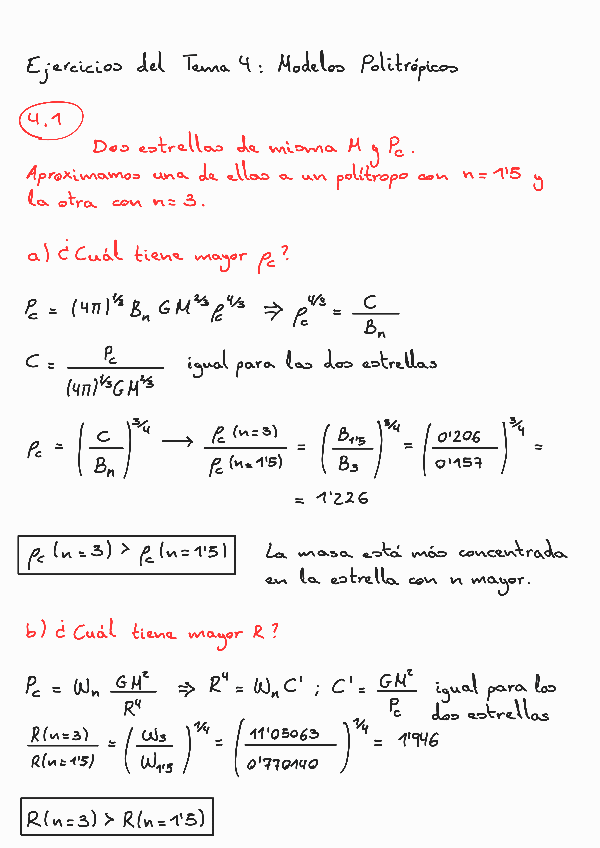 Ejercicios del Tema 4: Modelos Politrópicos
4.1
Dos estrellas de misma M y Pc.
Aproximamos una de ellas a un polítropo con n = 1'5 y
la otra con n = 3.
a) ¿Cuál tiene mayor ρc?
Pc = (4π)^1/3 Bn GM^2/3 ρc^4/3 ⇒ ρc^4/3 = C / Bn
C = Pc / (4π)^1/3 GM^2/3 igual para las dos estrellas
ρc = (C / Bn)^3/4 → ρc (n=3) / ρc (n=1'5) = (B1'5 / B3)^3/4 = (0'206 / 0'157)^3/4 =
= 1'226
ρc (n=3) > ρc (n=1'5) La masa está más concentrada
en la estrella con n mayor.
b) ¿Cuál tiene mayor R?
Pc = Wn GM² / R⁴ ⇒ R⁴ = Wn C' ; C' = GM² / Pc igual para las
dos estrellas
R(n=3) / R(n=1'5) = (W3 / W1'5)^1/4 = (11'05063 / 0'770140)^1/4 = 1'946
R(n=3) > R(n=1'5)